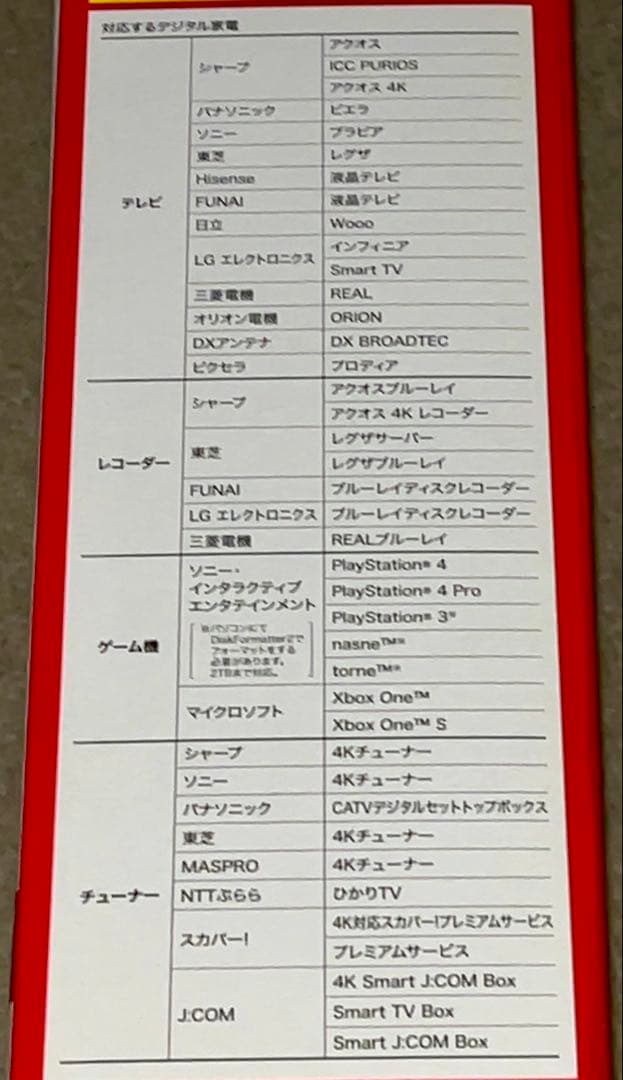 対応するデジタル家電
テレビ
シャープ
アクオス
ICC PURIOS
アクオス 4K
パナソニック
ビエラ
ソニー
ブラビア
東芝
レグザ
Hisense
液晶テレビ
FUNAI
液晶テレビ
日立
Wooo
LG エレクトロニクス
インフィニア
Smart TV
三菱電機
REAL
オリオン電機
ORION
DXアンテナ
DX BROADTEC
ピクセラ
プロディア
レコーダー
シャープ
アクオスブルーレイ
アクオス 4K レコーダー
東芝
レグザサーバー
レグザブルーレイ
FUNAI
ブルーレイディスクレコーダー
LG エレクトロニクス
ブルーレイディスクレコーダー
三菱電機
REALブルーレイ
ゲーム機
ソニー・
インタラクティブ
エンタテインメント
※パソコンにて
DiskFormatter2で
フォーマットをする
必要があります。
2TBまで対応。
PlayStation® 4
PlayStation® 4 Pro
PlayStation® 3※
nasne™※
torne™※
マイクロソフト
Xbox One™
Xbox One™ S
チューナー
シャープ
4Kチューナー
ソニー
4Kチューナー
パナソニック
CATVデジタルセットトップボックス
東芝
4Kチューナー
MASPRO
4Kチューナー
NTTぷらら
ひかりTV
スカパー!
4K対応スカパー!プレミアムサービス
プレミアムサービス
J:COM
4K Smart J:COM Box
Smart TV Box
Smart J:COM Box